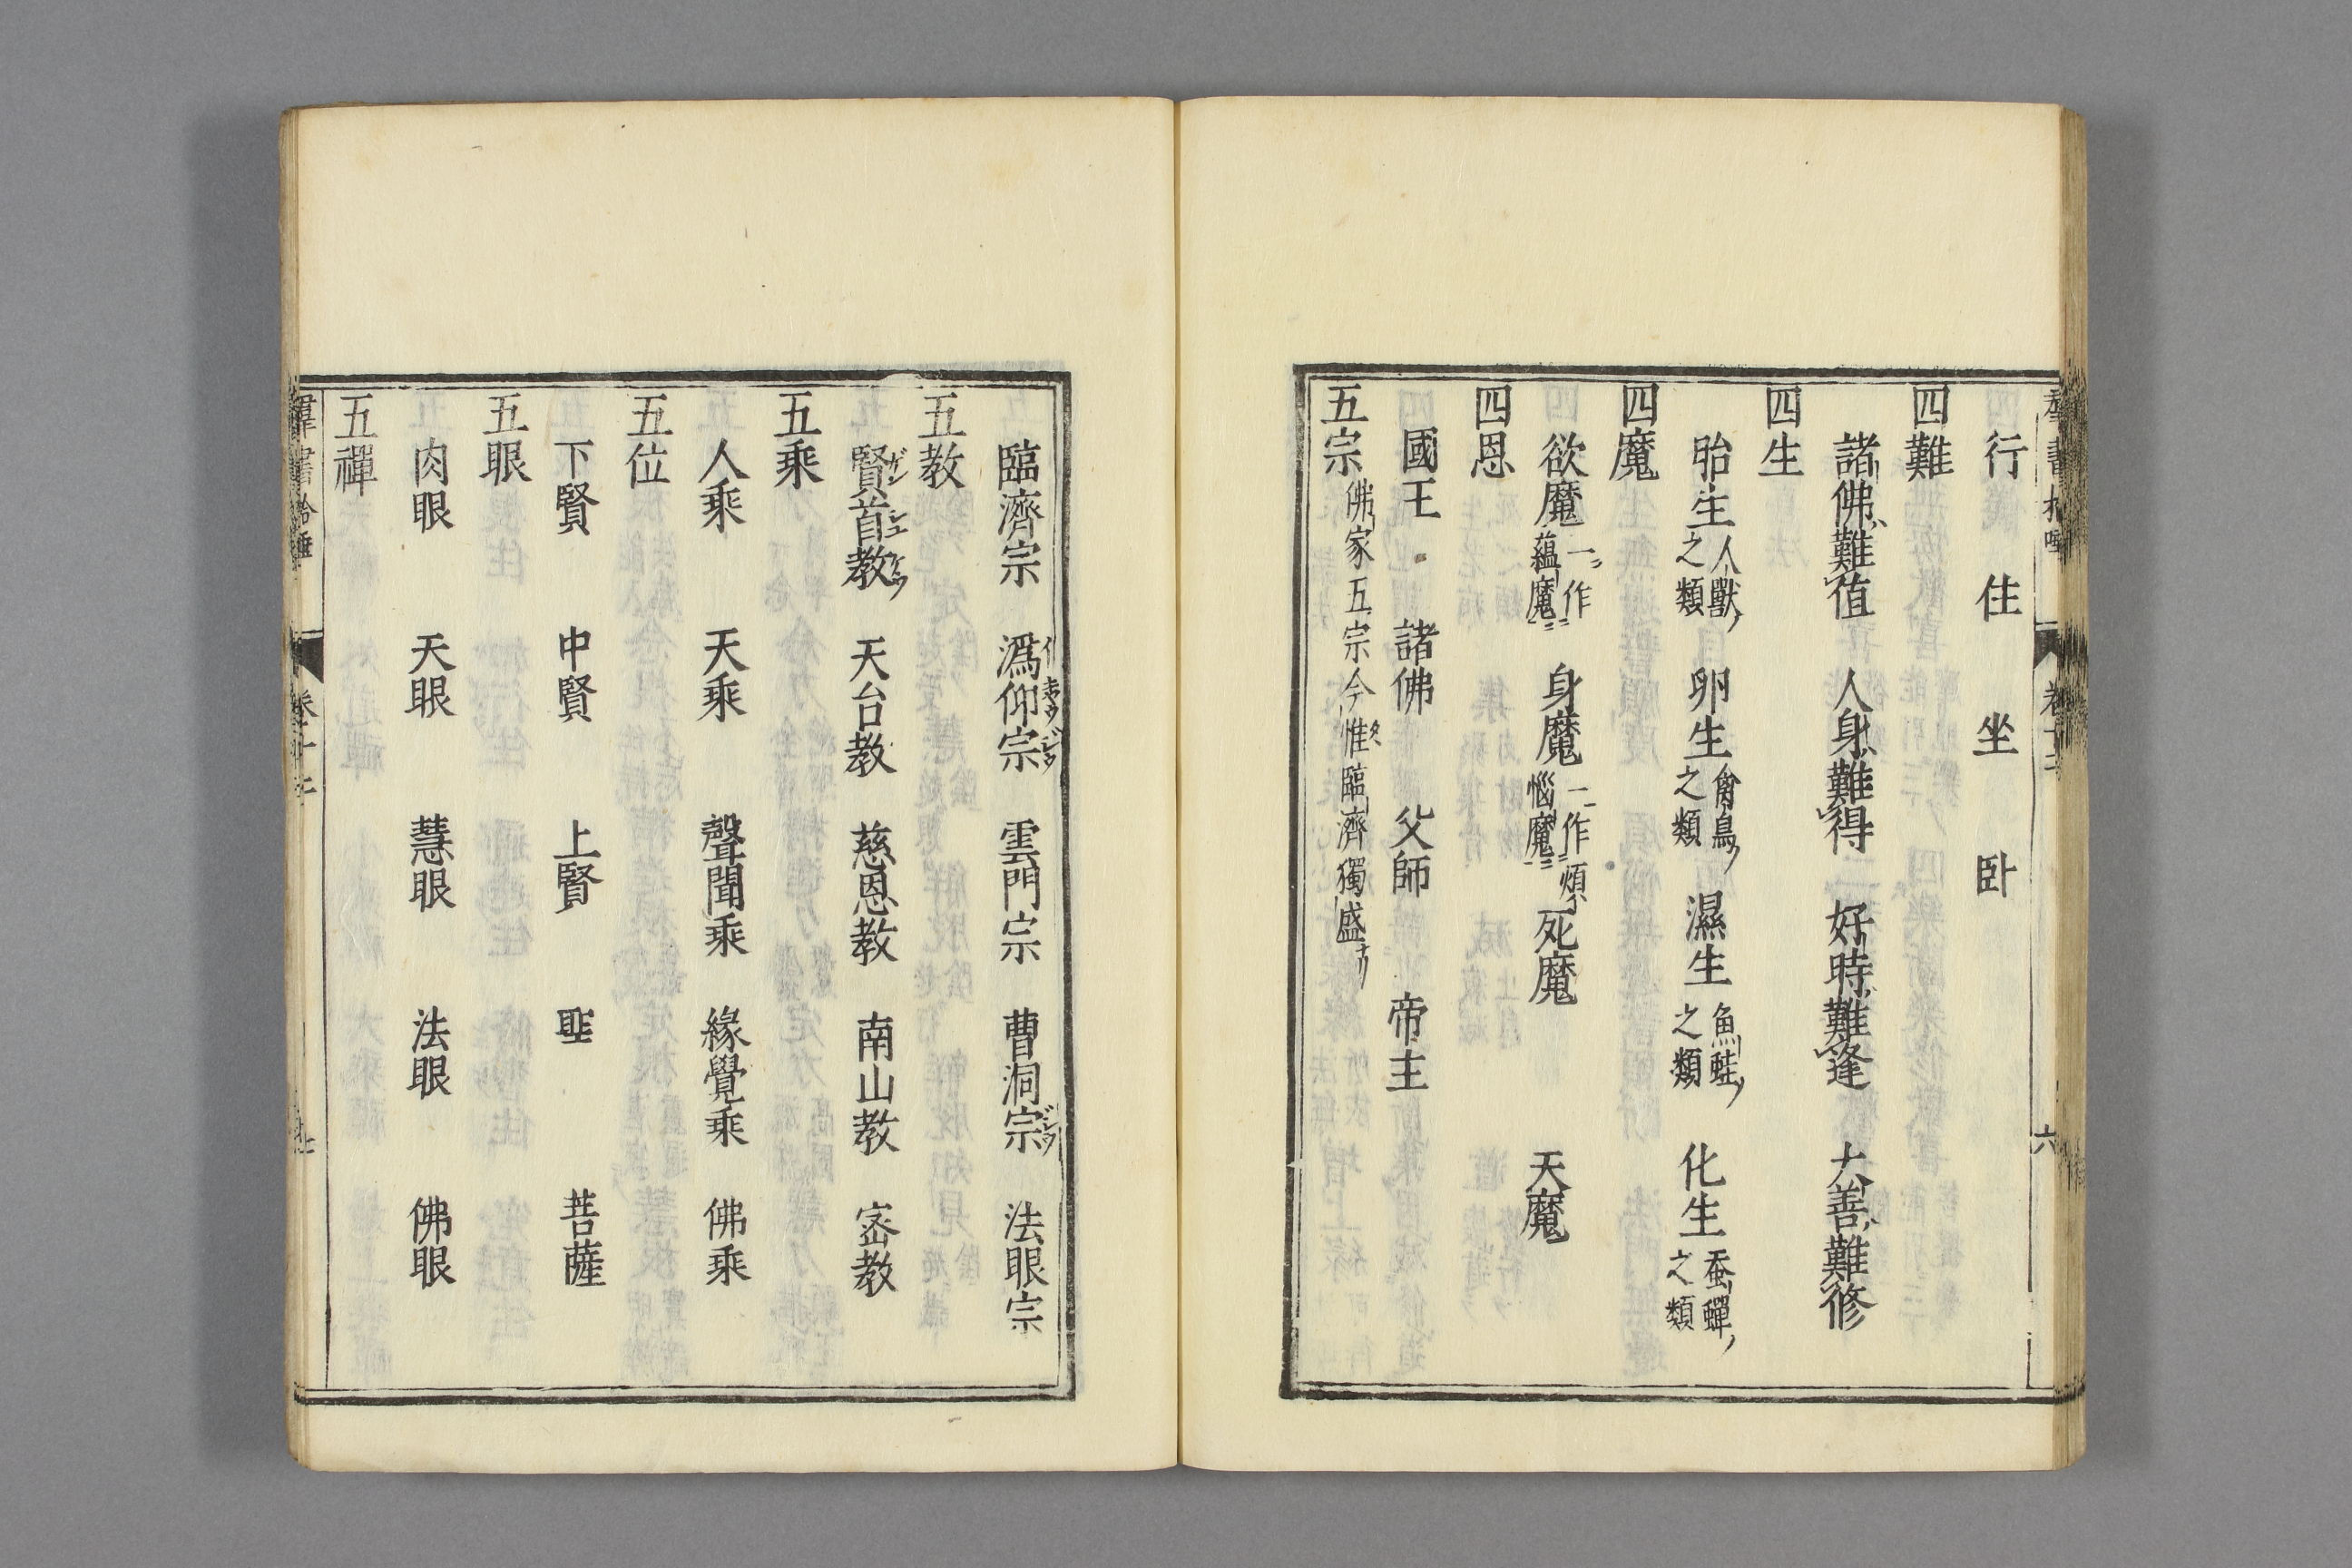 行 住 坐 卧
四難
諸佛難值 人身難得 好時難逢 大善難修
四生
胎生人獸之類 卵生禽鳥之類 濕生魚蛙之類 化生蚕蟬之類
四魔
欲魔一作蘊魔 身魔一作煩惱魔 死魔 天魔
四恩
國王 諸佛 父師 帝主
五宗佛家五宗今惟臨濟獨盛
卷十二
六
臨濟宗 潙仰宗 雲門宗 曹洞宗 法眼宗
五教
賢首教 天台教 慈恩教 南山教 宻教
五乘
人乘 天乘 聲聞乘 緣覺乘 佛乘
五位
下賢 中賢 上賢 聖 菩薩
五眼
肉眼 天眼 慧眼 法眼 佛眼
五禪
羣書拾唾